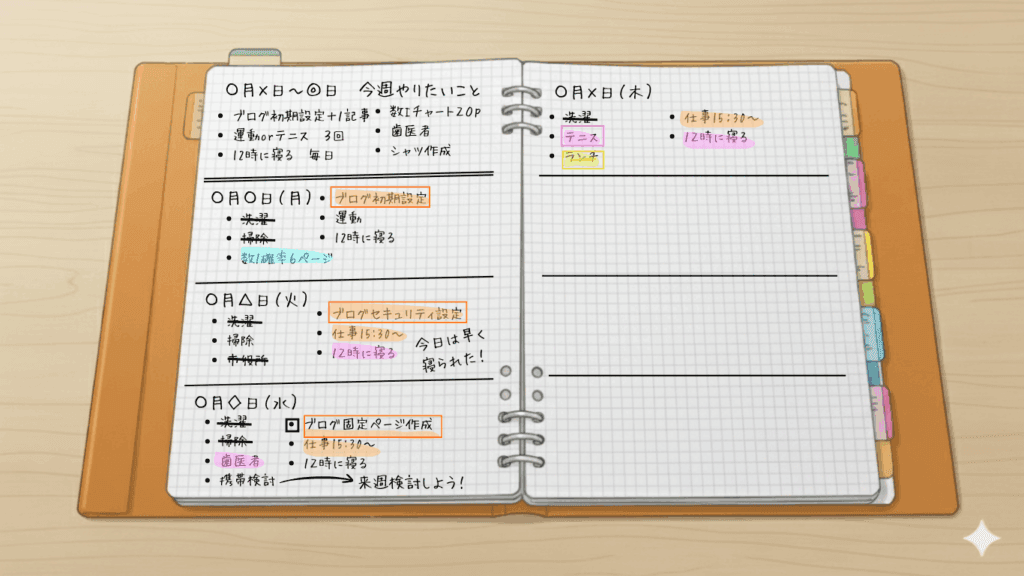 〇月×日～◎日 今週やりたいこと
・ブログ初期設定+1記事
・運動orテニス 3回
・12時に寝る 毎日
・数Iチャート20p
・歯医者
・シャツ作成
〇月〇日(月)
・洗濯
・掃除
・数1確率6ページ
・ブログ初期設定
・運動
・12時に寝る
〇月△日(火)
・洗濯
・掃除
・市役所
・ブログセキュリティ設定
・仕事15:30～
・12時に寝る
今日は早く
寝られた!
〇月◇日(水)
・洗濯
・掃除
・歯医者
・携帯検討→来週検討しよう!
・ブログ固定ページ作成
・仕事15:30～
・12時に寝る
〇月×日(木)
・洗濯
・テニス
・ランチ
・仕事15:30～
・12時に寝る